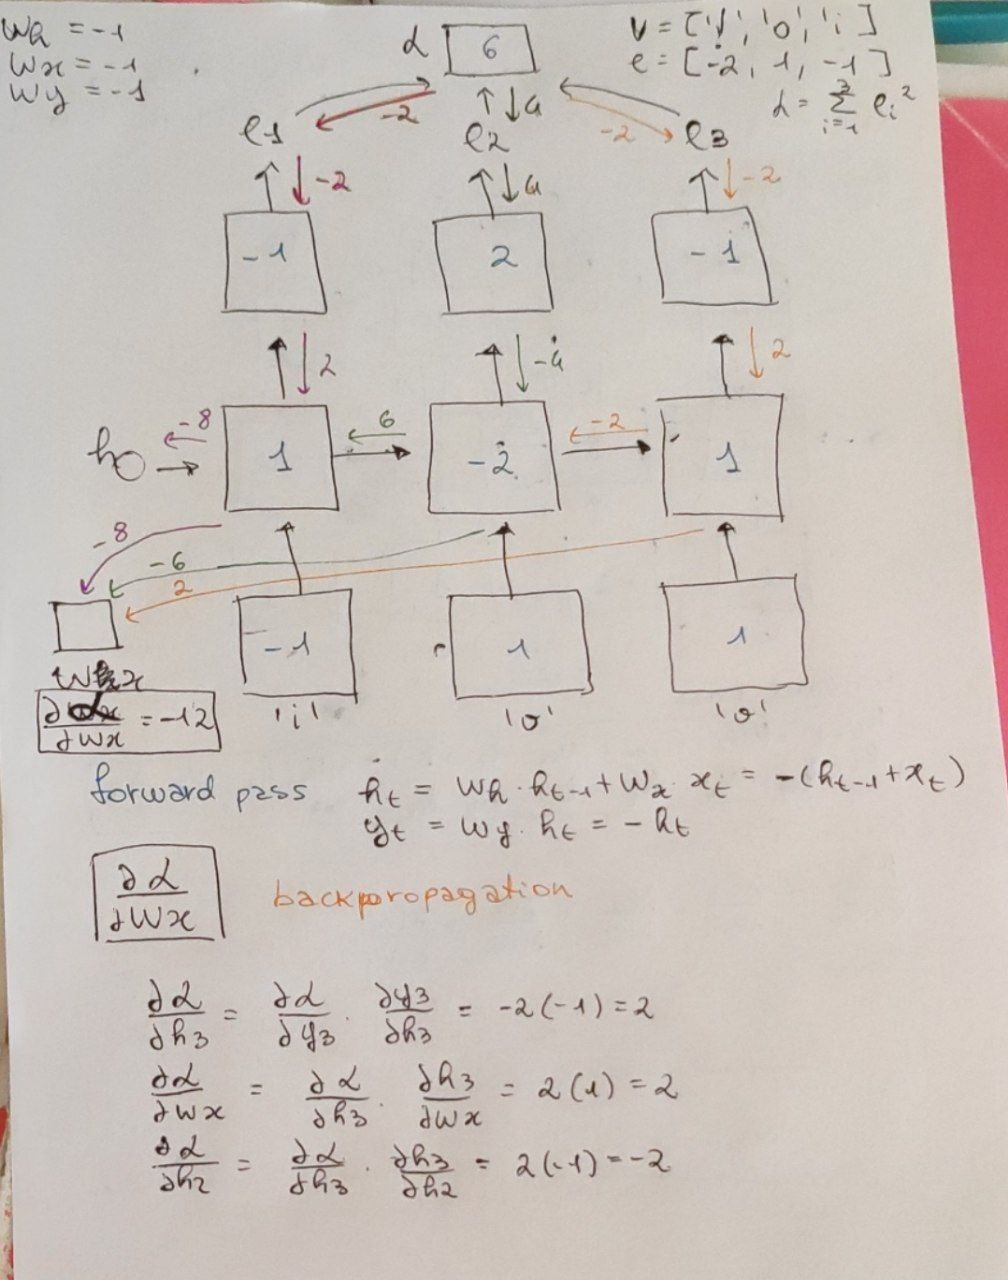 Wh = -1
Wx = -1
Wy = -1
L 6
e = [-2, 1, -1]
L = Σ ei²
i=1
-2 4 -2
e1 e2 e3
-2 4 -2
-1 2 -1
2 -4 2
-8 6 -2
h0 1 -2 1
-8
-6
2
-1 1 1
'i' 'o' 'o'
∂L/∂Wx = -12
forward pass ht = Wh · ht-1 + Wx · xt = -(ht-1 + xt)
yt = Wy · ht = - ht
∂L/∂Wx backpropagation
∂L/∂h3 = ∂L/∂y3 · ∂y3/∂h3 = -2(-1) = 2
∂L/∂Wx = ∂L/∂h3 · ∂h3/∂Wx = 2(1) = 2
∂L/∂h2 = ∂L/∂h3 · ∂h3/∂h2 = 2(-1) = -2